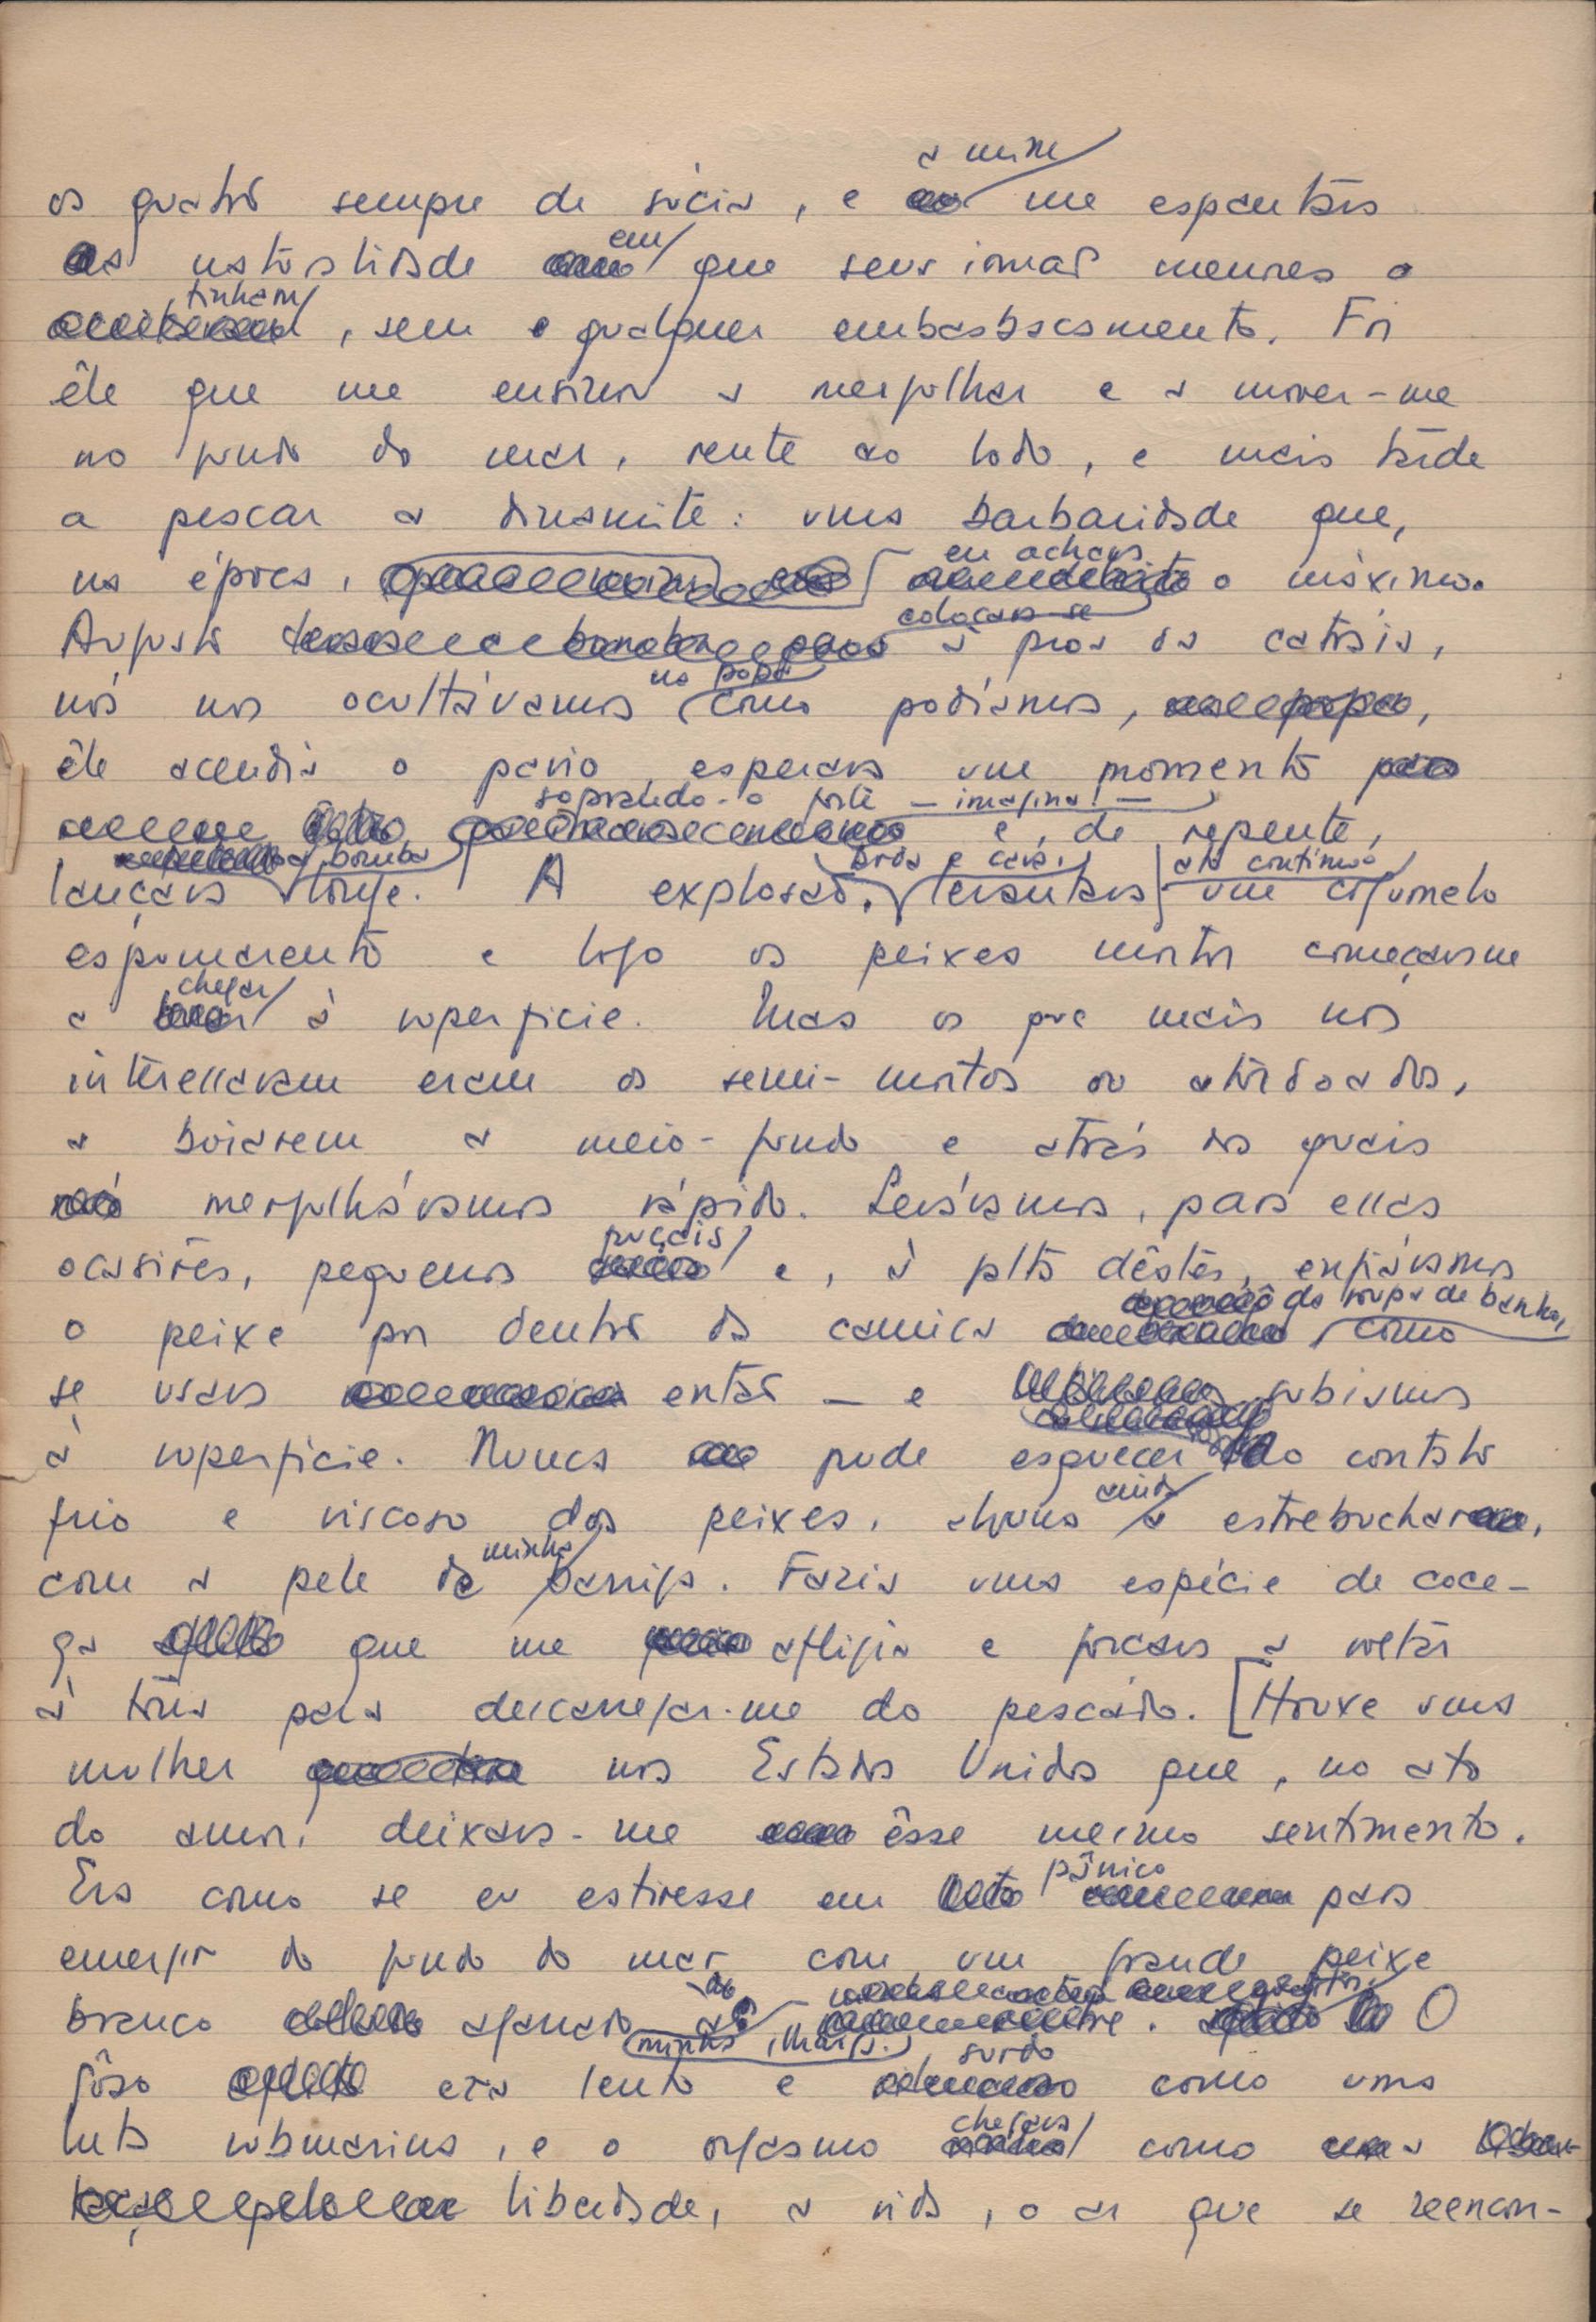 os quatro sempre de súcia, e a mim me espantava
a naturalidade em que seus irmãos menores o
tinham, sem qualquer embasbacamento. Foi
êle que me ensinou a mergulhar e a mover-me
no fundo do mar, rente ao lodo, e mais tarde
a pescar a dinamite: uma barbaridade que,
na época, eu achava o máximo.
Augusto colocava-se à proa da catraia,
nós nos ocultávamos na popa como podíamos,
êle acendia o pavio, esperava um momento
soprando-o forte — imagina! — e, de repente,
lançava a bomba longe. A explosão, surda e cava, levantava ato contínuo um cogumelo
espumarento e logo os peixes mortos começavam
a chegar à superfície. Mas os que mais nos
interessavam eram os semi-mortos ou atordoados,
a boiarem a meio-fundo e atrás dos quais
mergulhávamos rápido. Levávamos, para essas
ocasiões, pequenos puçais e, à falta dêstes, enfiávamos
o peixe por dentro da camisa da roupa de banho, como
se usava então — e subíamos
à superfície. Nunca pude esquecer o contato
frio e viscoso dos peixes, alguns ainda a estrebuchar,
com a pele de minha barriga. Fazia uma espécie de coce-
ga que me afligia e forçava a voltar
à tona para descarregar-me do pescado. [Houve uma
mulher nos Estados Unidos que, no ato
do amor, deixava-me êsse mesmo sentimento.
Era como se eu estivesse em pânico para
emergir do fundo do mar com um grande peixe
branco agarrado às minhas ilhargas. O
gôso era lento e surdo como uma
luta submarina, e o orgasmo chegava como a
liberdade, a vida, o ar que se reencon-